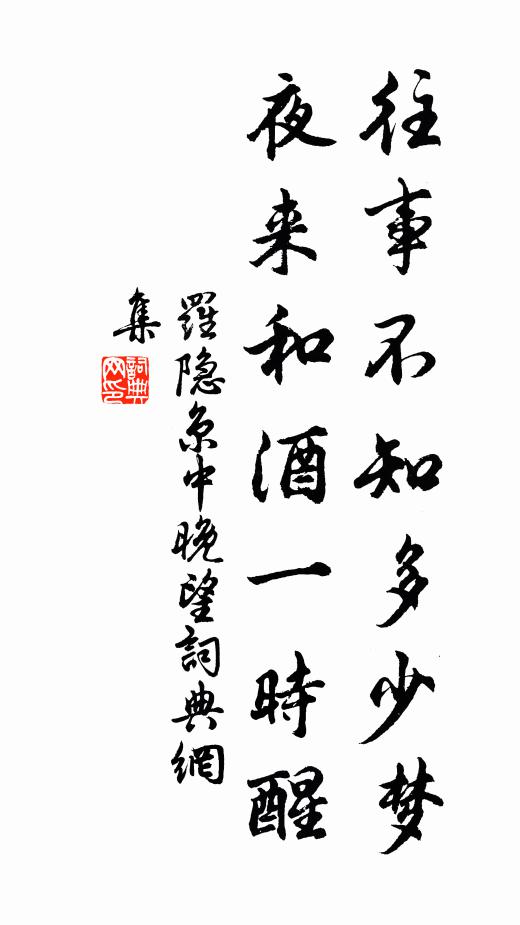 往事不知多少梦
夜来和酒一時醒
羅隐京中晚望詞典網
集
詞典网印